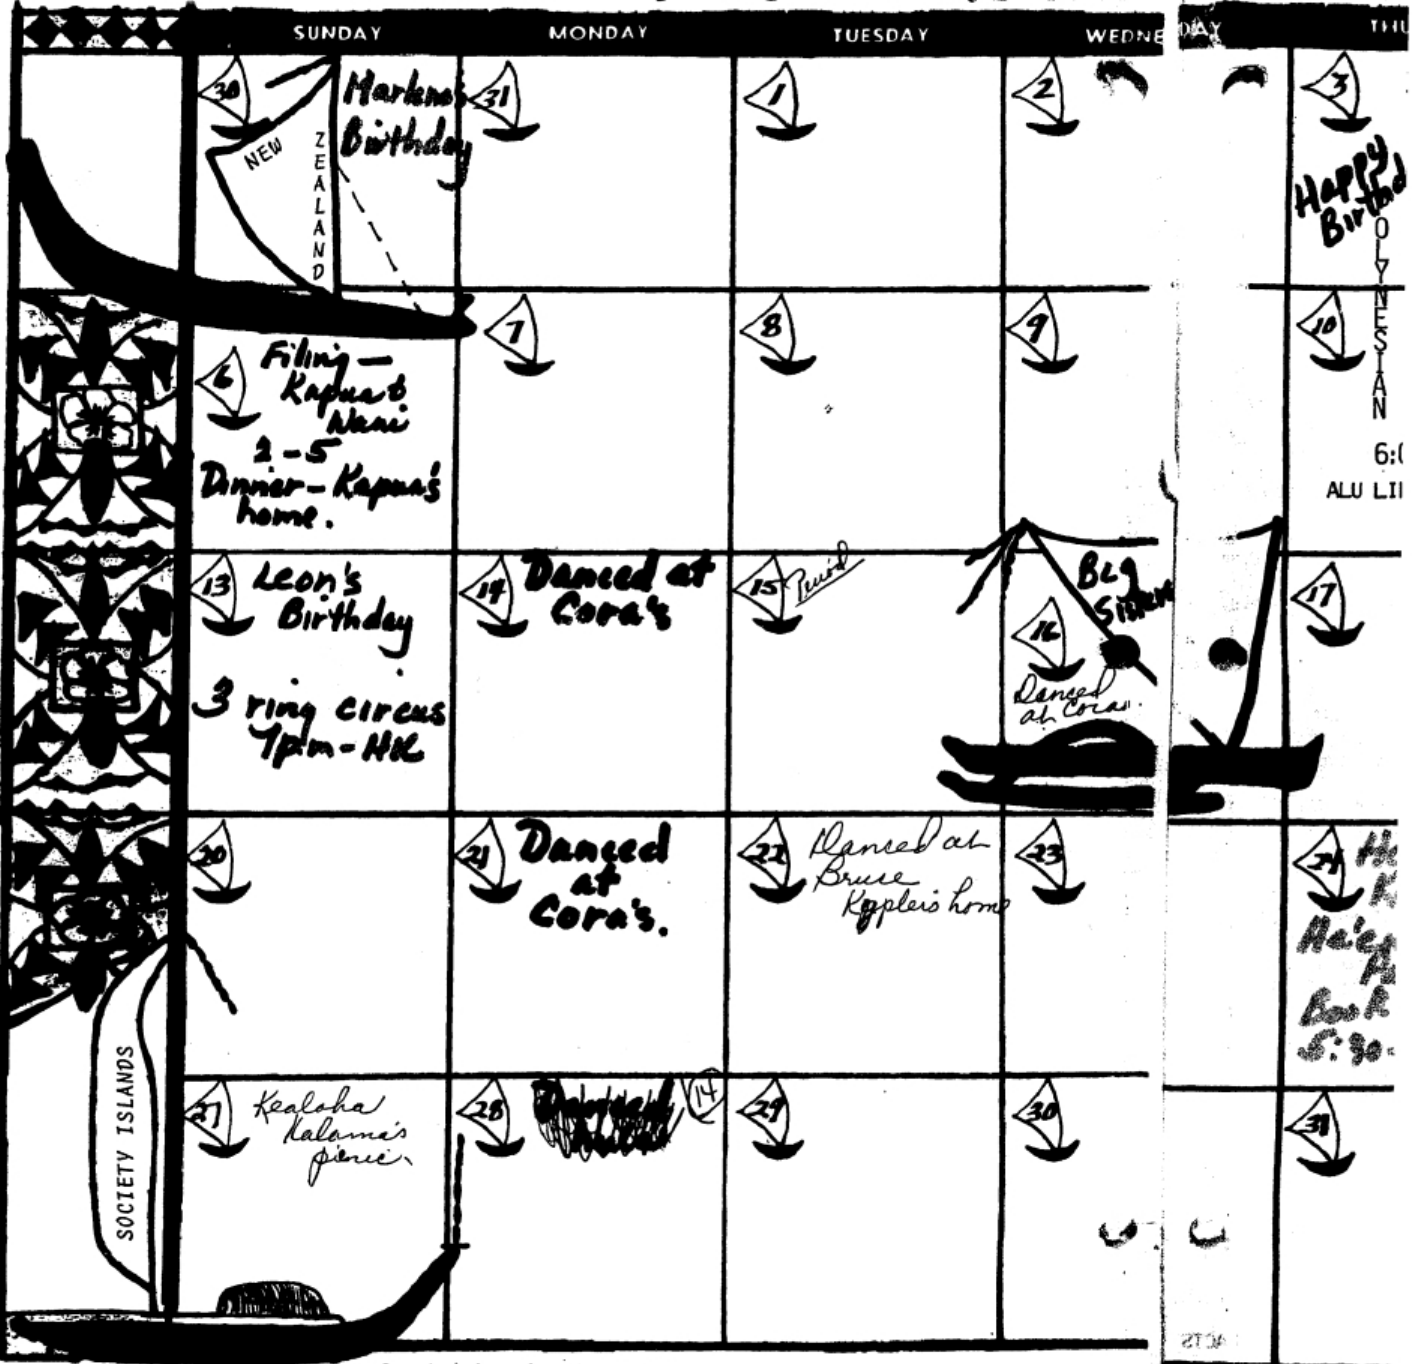 SUNDAY MONDAY TUESDAY WEDNE DAY THU
30
NEW
ZEALAND
Marlene's
Birthday
31
1
2
3
Happy
Birthd
OLYNESIAN
6
Filing —
Kapua &
Nani
2-5
Dinner - Kapua's
home.
7
8
9
10
6:0
ALU LI
13
Leon's
Birthday
3 ring circus
1pm - HIC
14
Danced at
Cora's
15
Period
16
Big
Sisters
Danced
at Coras.
17
20
21
Danced
at
Cora's.
22
Danced at
Bruse
home
23
24
Book
5:30-
SOCIETY ISLANDS
27
Kealoha
Kalama's
picnic.
28
14
29
30
31
ACTS